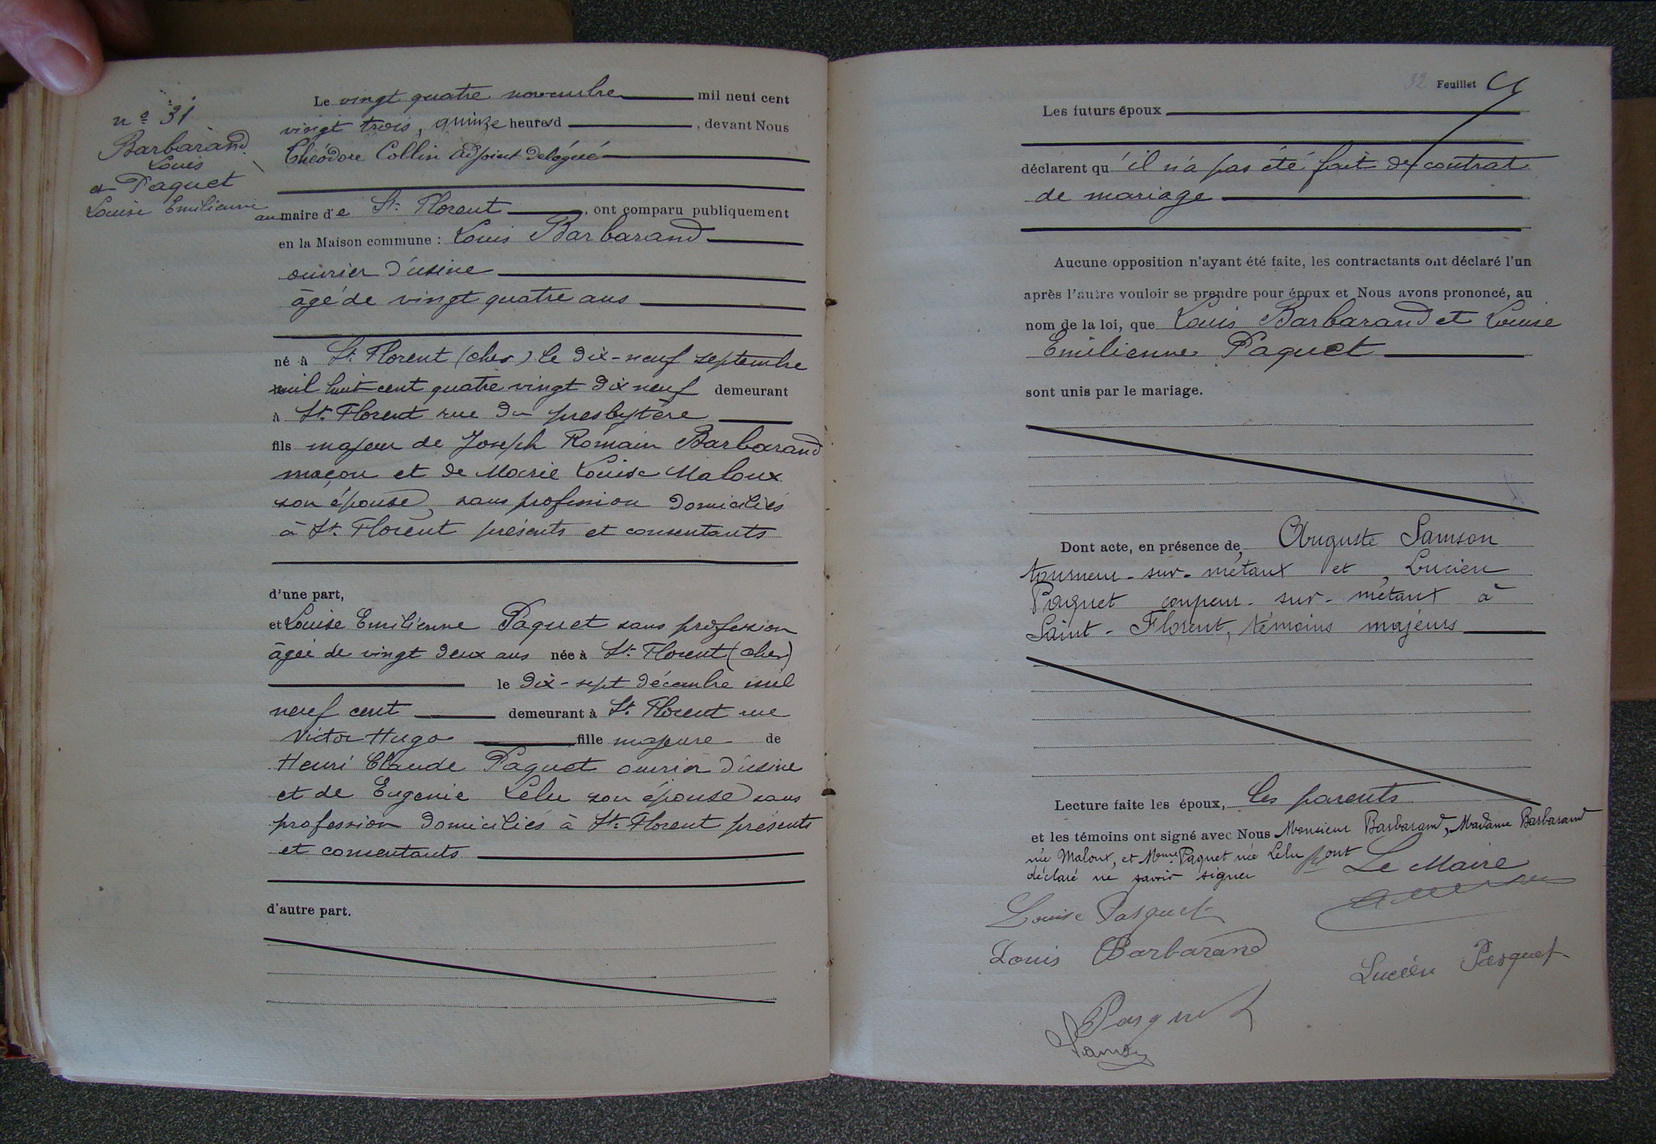 n° 31
Barbarand
Louis
et Paquet
Louise Emilienne
Le vingt quatre novembre mil neuf cent
vingt trois, quinze heures, devant Nous
Théodore Collin adjoint délégué
au maire de St Florent, ont comparu publiquement
en la Maison commune : Louis Barbarand
ouvrier d'usine
âgé de vingt quatre ans
né à St Florent (cher) le dix-neuf septembre
mil huit cent quatre vingt dix neuf demeurant
à St Florent rue du presbytère
fils majeur de Joseph Romain Barbarand
maçon et de Marie Louise Maloux
son épouse, sans profession domiciliés
à St Florent présents et consentants
d'une part,
et Louise Emilienne Paquet sans profession
âgée de vingt deux ans née à St Florent (cher)
le dix-sept décembre mil
neuf cent demeurant à St Florent rue
Victor Hugo fille majeure de
Henri Claude Paquet ouvrier d'usine
et de Eugenie Lelu son épouse sans
profession domiciliés à St Florent présents
et consentants
d'autre part.
32 Feuillet
Les futurs époux
déclarent qu'il n'a pas été fait de contrat
de mariage
Aucune opposition n'ayant été faite, les contractants ont déclaré l'un
après l'autre vouloir se prendre pour époux et Nous avons prononcé, au
nom de la loi, que Louis Barbarand et Louise
Emilienne Paquet
sont unis par le mariage.
Dont acte, en présence de Auguste Samson
tourneur-sur-métaux et Lucien
Paquet coupeur-sur-métaux à
Saint-Florent, témoins majeurs
Lecture faite les époux, les parents
et les témoins ont signé avec Nous Monsieur Barbarand, Madame Barbarand
née Maloux, et Mme Paquet née Lelu ont
déclaré ne savoir signer
Le Maire
Louise Pasquet
Louis Barbarand
Lucien Pasquet
Pasquet
Samson